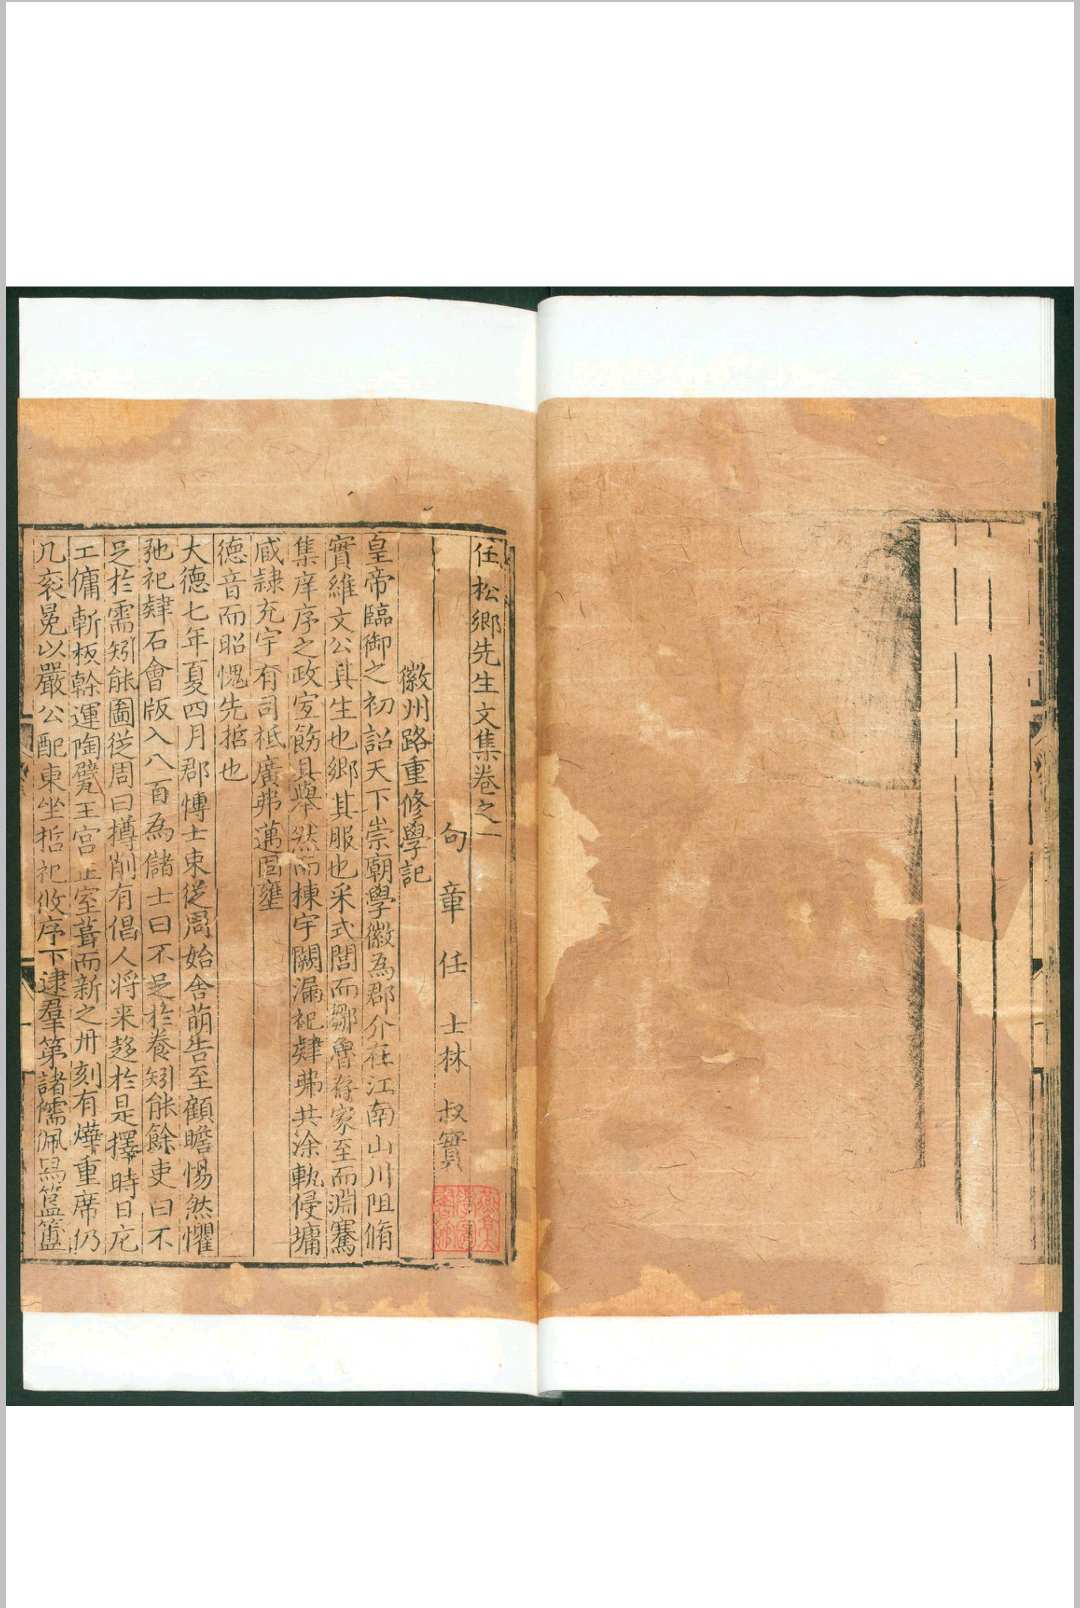 任松鄉先生文集卷之一
句章任士林叔實
徽州路重修學記
皇帝臨御之初詔天下崇廟學徽為郡介在江南山川阻脩
實維文公其生也鄉其服也采式閭而鄒魯存家至而淵騫
集庠序之政宜飭具舉然而棟宇闕漏祀肄弗共涂軌侵墉
咸隸充宇有司祗廣弗邁閭壅
德音而昭愧先哲也
大德七年夏四月郡愽士束從周始舍萌告至顧瞻惕然懼
弛祀肄石會版入八百為儲士曰不足於養矧能餘吏曰不
足於需矧能圖從周曰樽削有倡人将来趍於是擇時日庀
工傭斬板榦運陶甓王宫正室葺而新之丹刻有煒重席仍
几衮冕以嚴公配東坐哲祀攸序下逮羣第諸儒佩舄簋簠